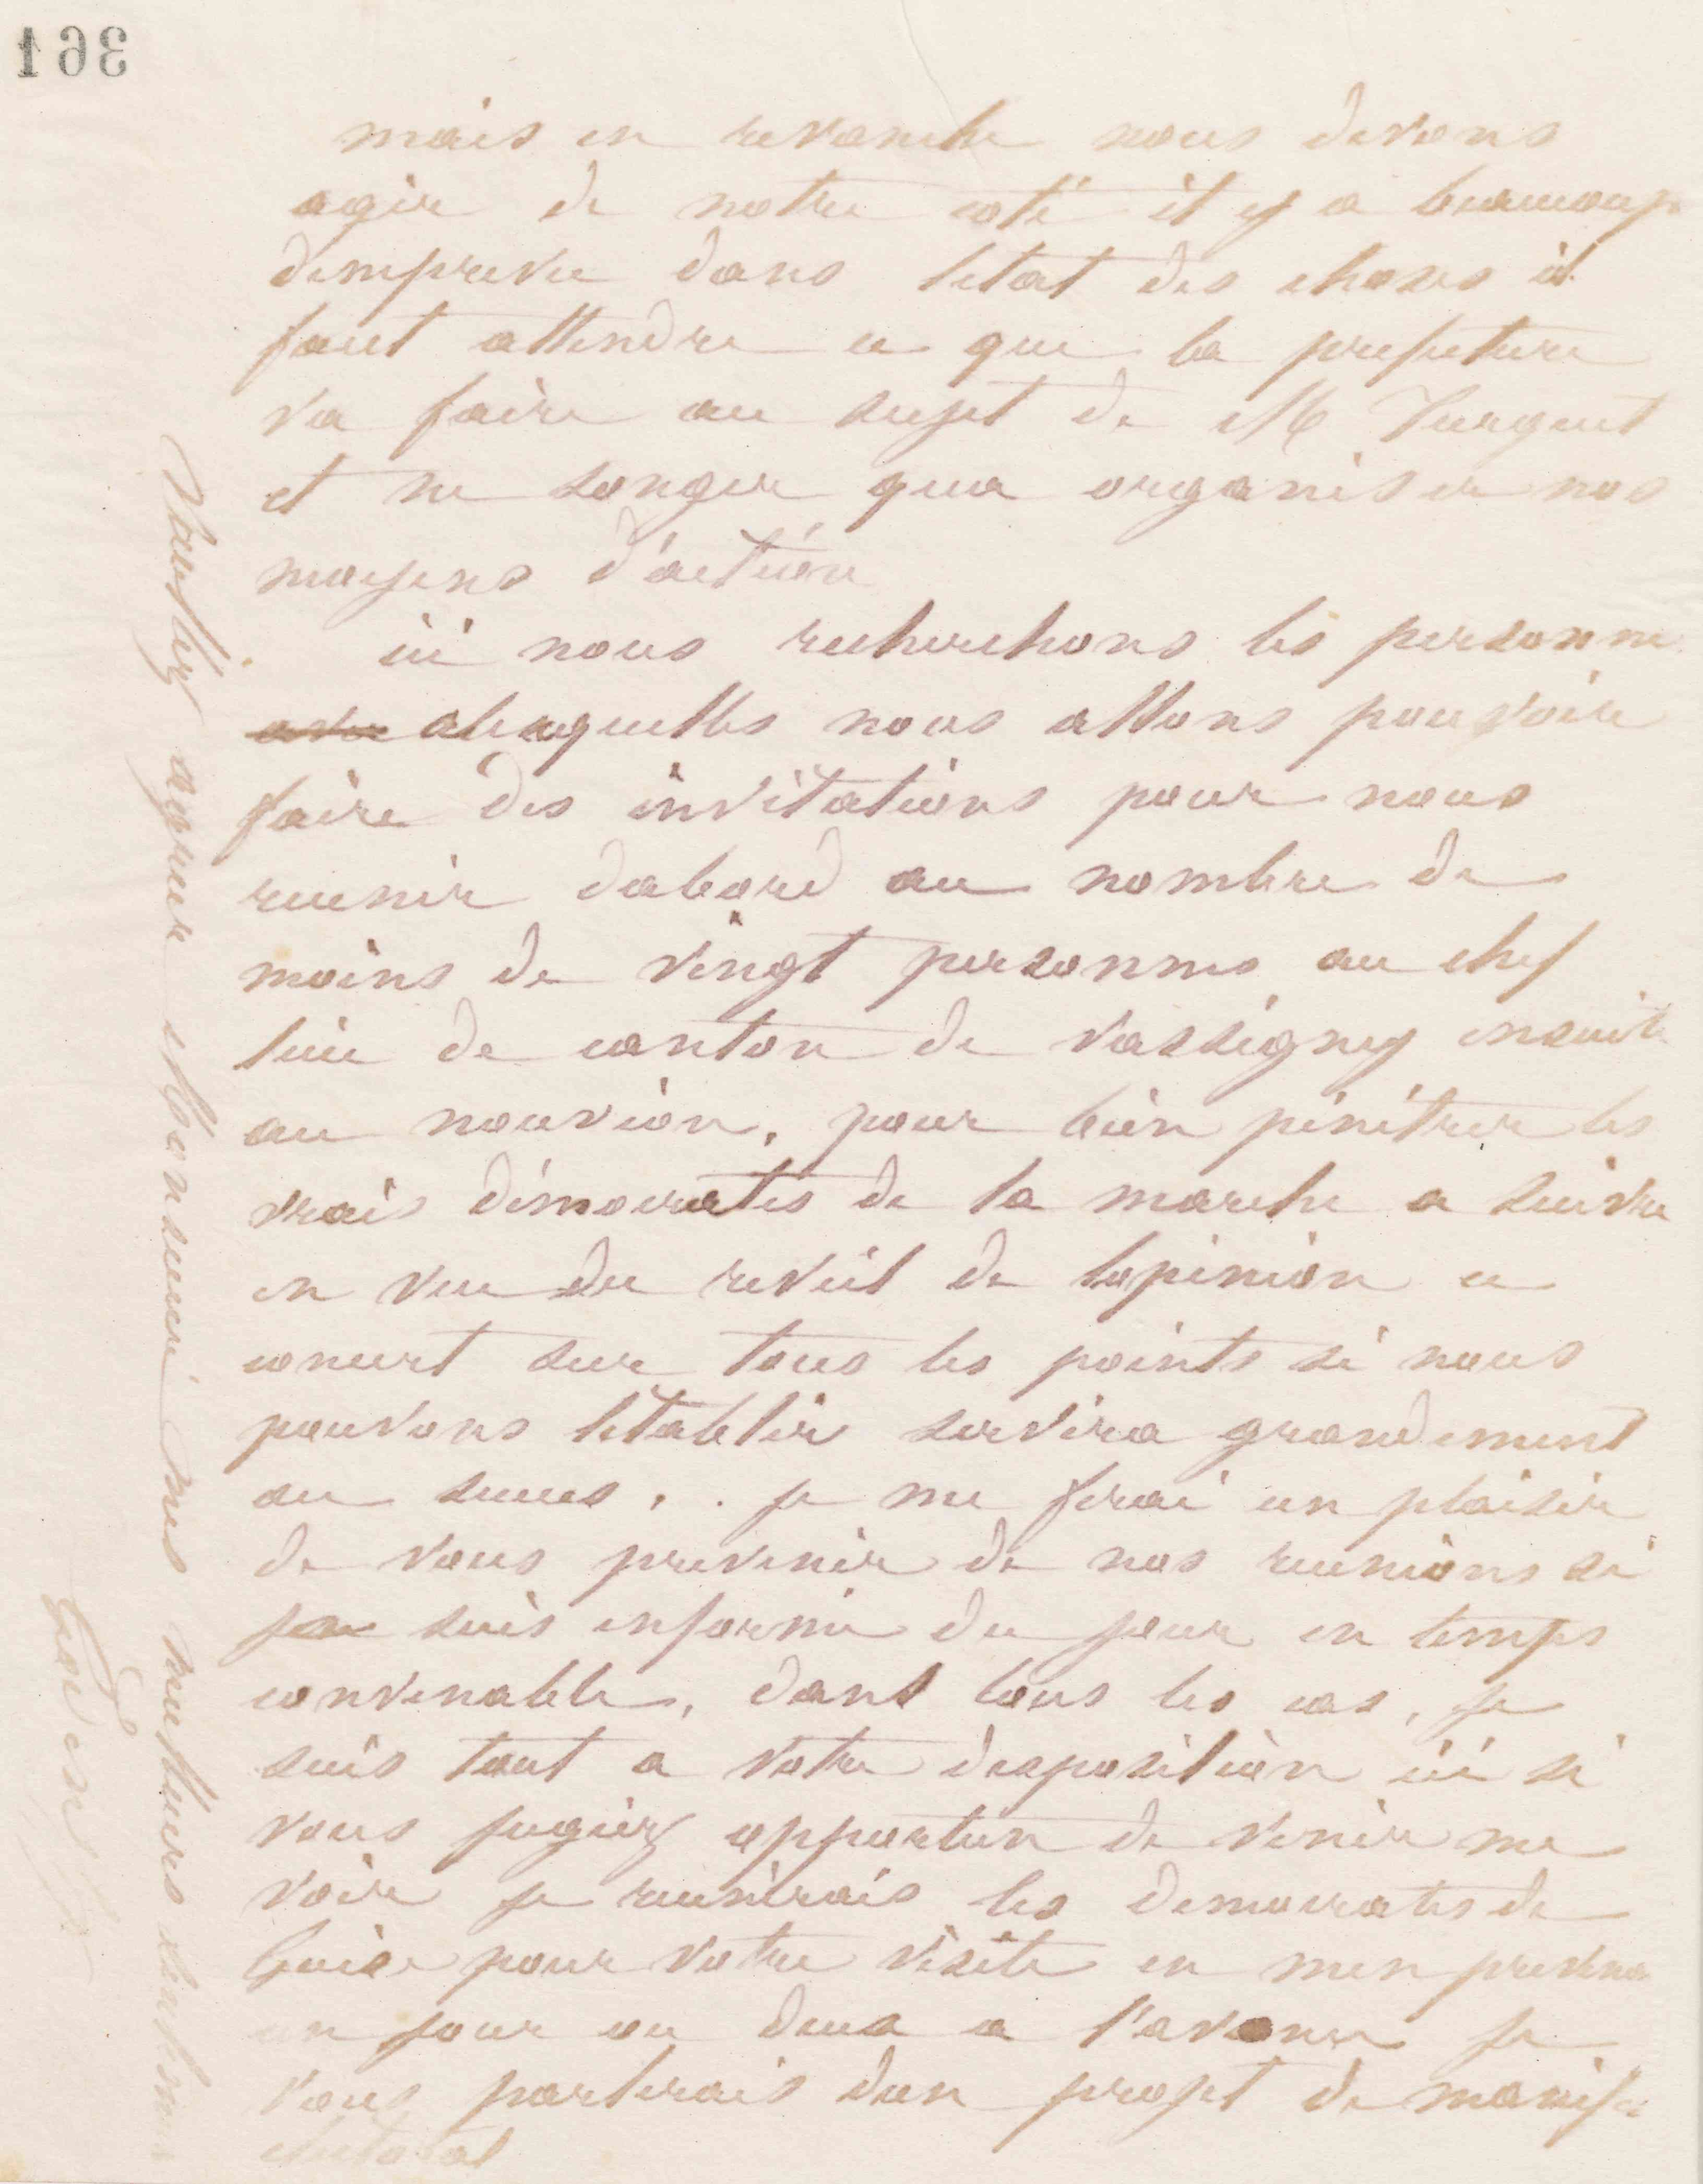 361
mais en revanche nous devons
agir de notre coté il y a beaucoup
dimprevu dans letat des choses il
faut attendre ce que la prefecture
va faire au sujet de M Turquet
et ne songer qua organiser nos
moyens d'action
ici nous recherchons les personne
avec alesquelles nous allons pouvoir
faire des invitations pour nous
reunir dabord au nombre de
moins de vingt personnes au chef
lieu de canton de vassigney ensuite
au nouvion, pour bien pénétrer les
vrais démocrates de la marche a suivre
en vue du reveil de lopinion ce
concert sur tous les points si nous
pouvons letablir servira grandement
au succes. . je me ferai un plaisir
de vous prevenir de nos reunions si
je suis informé du jour en temps
convenable, dans tous les cas, je
suis tout a votre disposition ici si
vous jugiez opportun de venir me
voir je reunirais les democrates de
Guise pour votre visite en men prevena
un jour ou deux a l'avance je
vous parlerais dun projet de manife
electoral
Veuillez agreer Monsieur mes meilleurs sentimen
Godin